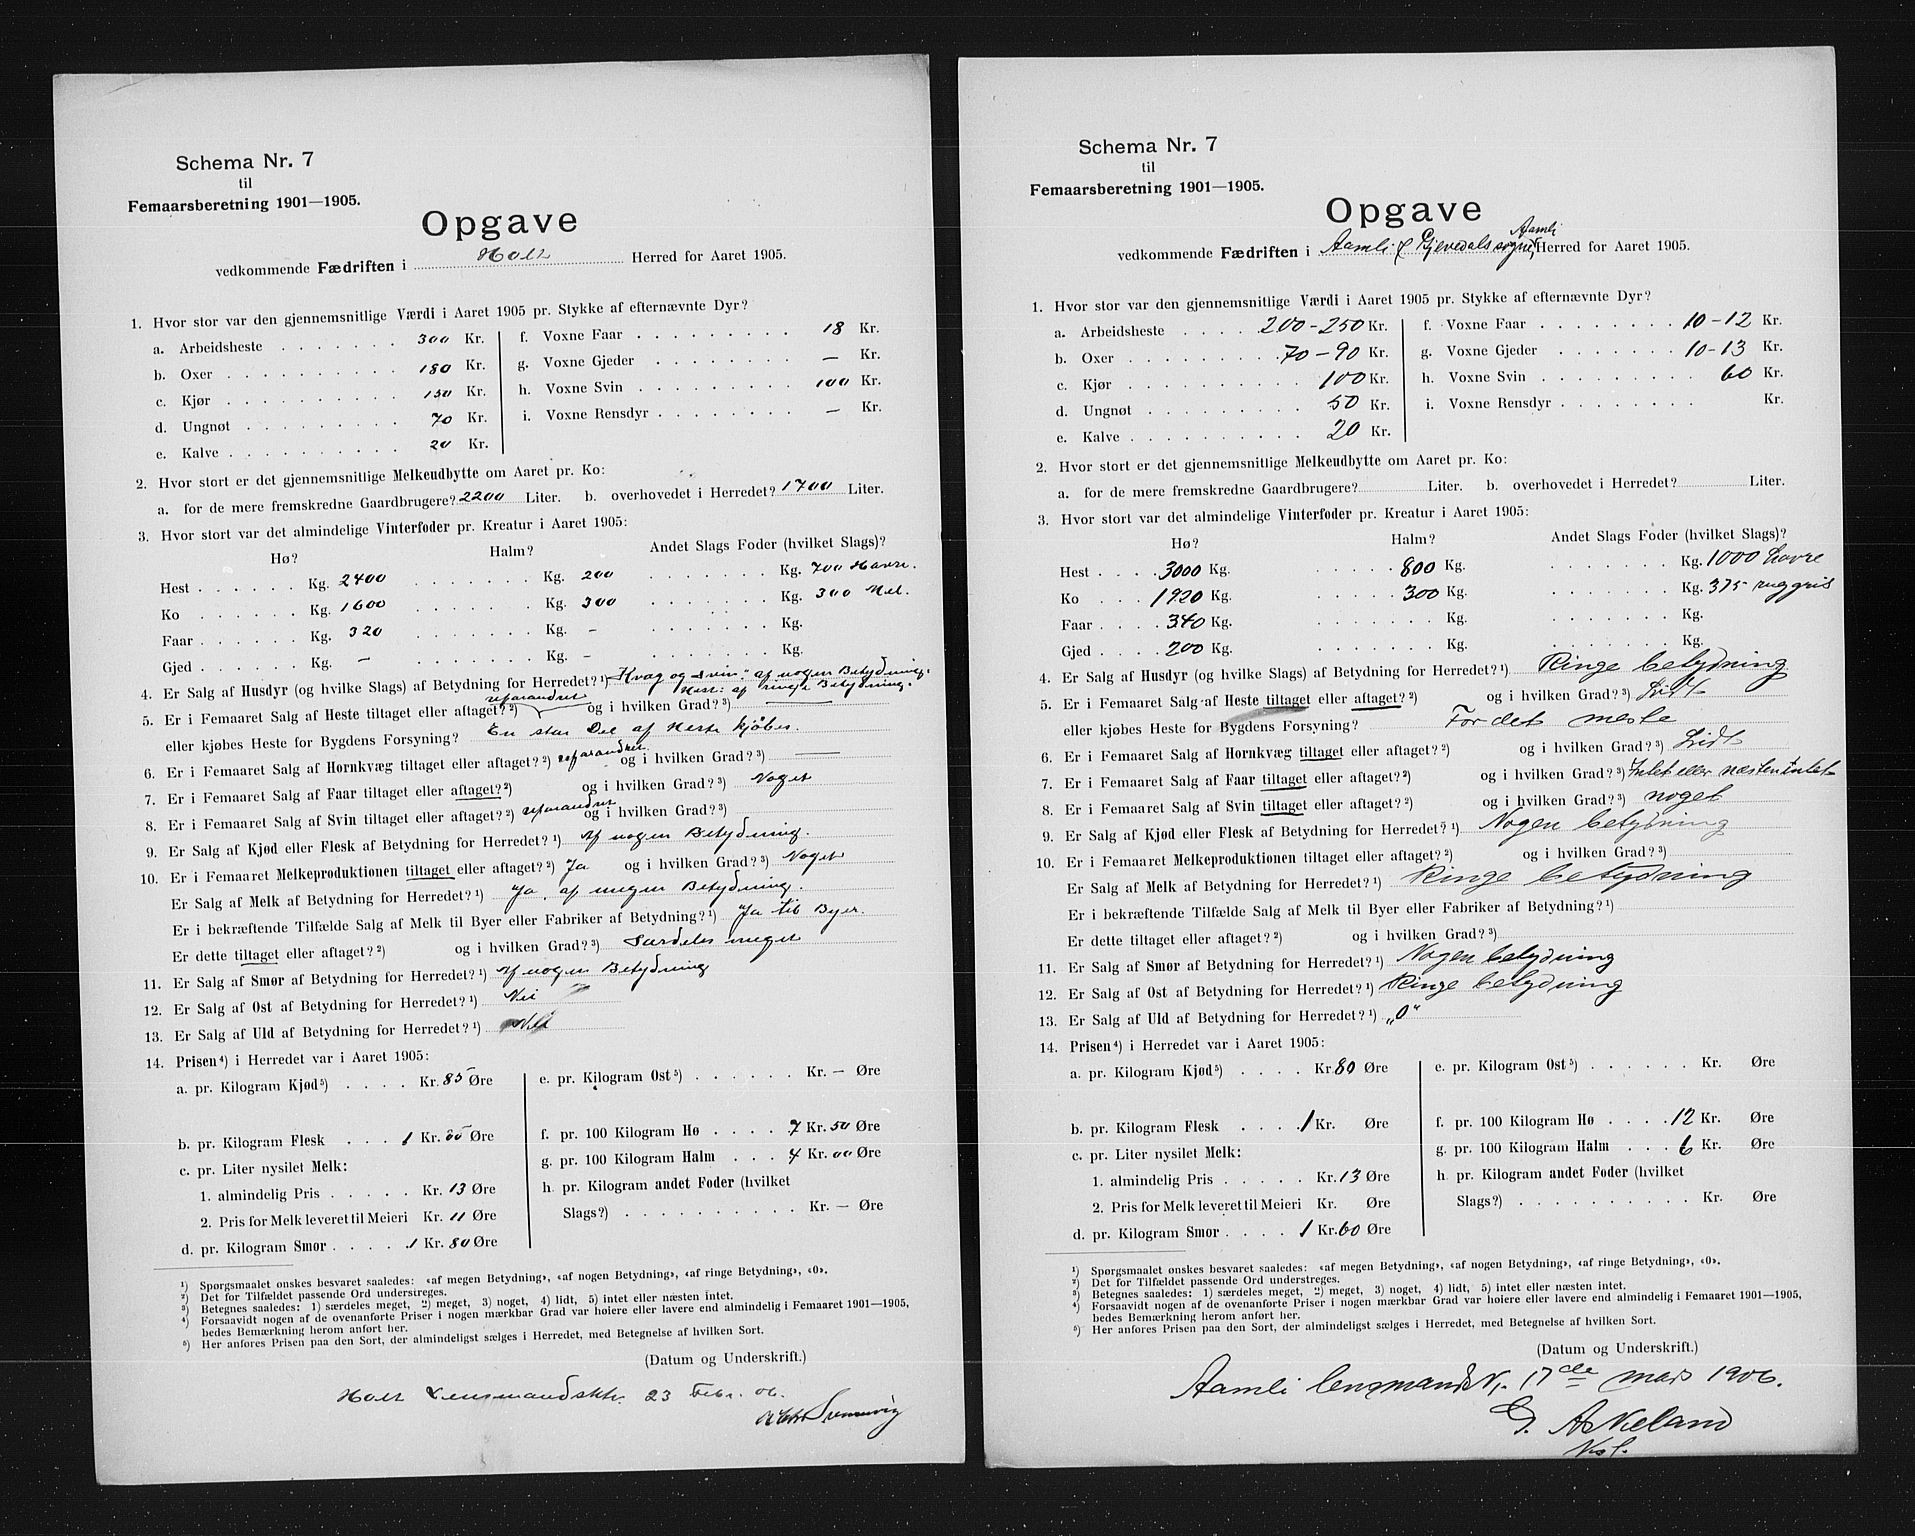 Schema Nr. 7
til
Femaarsberetning 1901—1905.
Opgave
vedkommende Fædriften i Holt Herred for Aaret 1905.
1. Hvor stor var den gjennemsnitlige Værdi i Aaret 1905 pr. Stykke af efternævnte Dyr?
a. Arbeidsheste 300 Kr.
b. Oxer 180 Kr.
c. Kjør 150 Kr.
d. Ungnøt 70 Kr.
e. Kalve 20 Kr.
f. Voxne Faar 18 Kr.
g. Voxne Gjeder — Kr.
h. Voxne Svin 100 Kr.
i. Voxne Rensdyr — Kr.
2. Hvor stort er det gjennemsnitlige Melkeudbytte om Aaret pr. Ko:
a. for de mere fremskredne Gaardbrugere? 2200 Liter. b. overhovedet i Herredet? 1700 Liter.
3. Hvor stort var det almindelige Vinterfoder pr. Kreatur i Aaret 1905:
Hø? Halm? Andet Slags Foder (hvilket Slags)?
Hest Kg. 2400 Kg. 200 Kg. 700 Havre.
Ko Kg. 1600 Kg. 300 Kg. 300 Mel.
Faar Kg. 320 Kg. – Kg.
Gjed Kg. — Kg. – Kg.
4. Er Salg af Husdyr (og hvilke Slags) af Betydning for Herredet? ¹) Kvæg og Svin: af nogen Betydning.
Hest: af ringe Betydning.
5. Er i Femaaret Salg af Heste tiltaget eller aftaget? ²) uforandret og i hvilken Grad? ³) —
eller kjøbes Heste for Bygdens Forsyning? En stor Del af Heste kjøbes.
6. Er i Femaaret Salg af Hornkvæg tiltaget eller aftaget? ²) uforandret og i hvilken Grad? ³) —
7. Er i Femaaret Salg af Faar tiltaget eller aftaget? ²) og i hvilken Grad? ³) Noget
8. Er i Femaaret Salg af Svin tiltaget eller aftaget? ²) uforandret og i hvilken Grad? ³)
9. Er Salg af Kjød eller Flesk af Betydning for Herredet? ¹) Af nogen Betydning.
10. Er i Femaaret Melkeproduktionen tiltaget eller aftaget? ²) Ja og i hvilken Grad? ³) Noget
Er Salg af Melk af Betydning for Herredet? ¹) Ja, af megen Betydning.
Er i bekræftende Tilfælde Salg af Melk til Byer eller Fabriker af Betydning? ¹) Ja til Byer.
Er dette tiltaget eller aftaget? ²) og i hvilken Grad? ³) Særdeles meget
11. Er Salg af Smør af Betydning for Herredet? ¹) Af nogen Betydning
12. Er Salg af Ost af Betydning for Herredet? ¹) Nei
13. Er Salg af Uld af Betydning for Herredet? ¹) Nei
14. Prisen ⁴) i Herredet var i Aaret 1905:
a. pr. Kilogram Kjød ⁵) Kr. 85 Øre
b. pr. Kilogram Flesk 1 Kr. 05 Øre
c. pr. Liter nysilet Melk:
1. almindelig Pris Kr. 13 Øre
2. Pris for Melk leveret til Meieri Kr. 11 Øre
d. pr. Kilogram Smør 1 Kr. 80 Øre
e. pr. Kilogram Ost ⁵) Kr. — Øre
f. pr. 100 Kilogram Hø 7 Kr. 50 Øre
g. pr. 100 Kilogram Halm 4 Kr. 00 Øre
h. pr. Kilogram andet Foder (hvilket
Slags?) Kr. — Øre
¹) Spørgsmaalet ønskes besvaret saaledes: «af megen Betydning», «af nogen Betydning», «af ringe Betydning», «0».
²) Det for Tilfældet passende Ord understreges.
³) Betegnes saaledes: 1) særdeles meget, 2) meget, 3) noget, 4) lidt, 5) intet eller næsten intet.
⁴) Forsaavidt nogen af de ovenanførte Priser i nogen mærkbar Grad var høiere eller lavere end almindelig i Femaaret 1901—1905,
bedes Bemærkning herom anført her.
⁵) Her anføres Prisen paa den Sort, der almindeligst sælges i Herredet, med Betegnelse af hvilken Sort.
(Datum og Underskrift.)
Holt Lensmandsktr. 23 Febr. 06.
Schema Nr. 7
til
Femaarsberetning 1901—1905.
Opgave
Aamli
vedkommende Fædriften i Aamli & Gjevedals sogne, Herred for Aaret 1905.
1. Hvor stor var den gjennemsnitlige Værdi i Aaret 1905 pr. Stykke af efternævnte Dyr?
a. Arbeidsheste 200-250 Kr.
b. Oxer 70-90 Kr.
c. Kjør 100 Kr.
d. Ungnøt 50 Kr.
e. Kalve 20 Kr.
f. Voxne Faar 10-12 Kr.
g. Voxne Gjeder 10-13 Kr.
h. Voxne Svin 60 Kr.
i. Voxne Rensdyr Kr.
2. Hvor stort er det gjennemsnitlige Melkeudbytte om Aaret pr. Ko:
a. for de mere fremskredne Gaardbrugere? Liter. b. overhovedet i Herredet? Liter.
3. Hvor stort var det almindelige Vinterfoder pr. Kreatur i Aaret 1905:
Hø? Halm? Andet Slags Foder (hvilket Slags)?
Hest 3000 Kg. 800 Kg. Kg. 1000 havre
Ko 1920 Kg. 300 Kg. Kg. 375 ruggris
Faar 340 Kg. Kg. Kg.
Gjed 200 Kg. Kg. Kg.
4. Er Salg af Husdyr (og hvilke Slags) af Betydning for Herredet? ¹) Ringe betydning
5. Er i Femaaret Salg af Heste tiltaget eller aftaget? ²) og i hvilken Grad? ³) Lidt
eller kjøbes Heste for Bygdens Forsyning? For det meste
6. Er i Femaaret Salg af Hornkvæg tiltaget eller aftaget? ²) og i hvilken Grad? ³) Lidt
7. Er i Femaaret Salg af Faar tiltaget eller aftaget? ²) og i hvilken Grad? ³) Intet eller næsten intet
8. Er i Femaaret Salg af Svin tiltaget eller aftaget? ²) og i hvilken Grad? ³) noget
9. Er Salg af Kjød eller Flesk af Betydning for Herredet? ¹) Nogen betydning
10. Er i Femaaret Melkeproduktionen tiltaget eller aftaget? ²) og i hvilken Grad? ³)
Er Salg af Melk af Betydning for Herredet? ¹) Ringe betydning
Er i bekræftende Tilfælde Salg af Melk til Byer eller Fabriker af Betydning? ¹)
Er dette tiltaget eller aftaget? ²) og i hvilken Grad? ³)
11. Er Salg af Smør af Betydning for Herredet? ¹) Nogen betydning
12. Er Salg af Ost af Betydning for Herredet? ¹) Ringe betydning
13. Er Salg af Uld af Betydning for Herredet? ¹) „0"
14. Prisen ⁴) i Herredet var i Aaret 1905:
a. pr. Kilogram Kjød ⁵) Kr. 80 Øre
b. pr. Kilogram Flesk 1 Kr. Øre
c. pr. Liter nysilet Melk:
1. almindelig Pris Kr. 13 Øre
2. Pris for Melk leveret til Meieri Kr. Øre
d. pr. Kilogram Smør 1 Kr. 60 Øre
e. pr. Kilogram Ost ⁵) Kr. Øre
f. pr. 100 Kilogram Hø 12 Kr. Øre
g. pr. 100 Kilogram Halm 6 Kr. Øre
h. pr. Kilogram andet Foder (hvilket
Slags?) Kr. Øre
¹) Spørgsmaalet ønskes besvaret saaledes: «af megen Betydning», «af nogen Betydning», «af ringe Betydning», «0».
²) Det for Tilfældet passende Ord understreges.
³) Betegnes saaledes: 1) særdeles meget, 2) meget, 3) noget, 4) lidt, 5) intet eller næsten intet.
⁴) Forsaavidt nogen af de ovenanførte Priser i nogen mærkbar Grad var høiere eller lavere end almindelig i Femaaret 1901—1905,
bedes Bemærkning herom anført her.
⁵) Her anføres Prisen paa den Sort, der almindeligst sælges i Herredet, med Betegnelse af hvilken Sort.
(Datum og Underskrift.)
Aamli 17de mars 1906.
G. Askeland